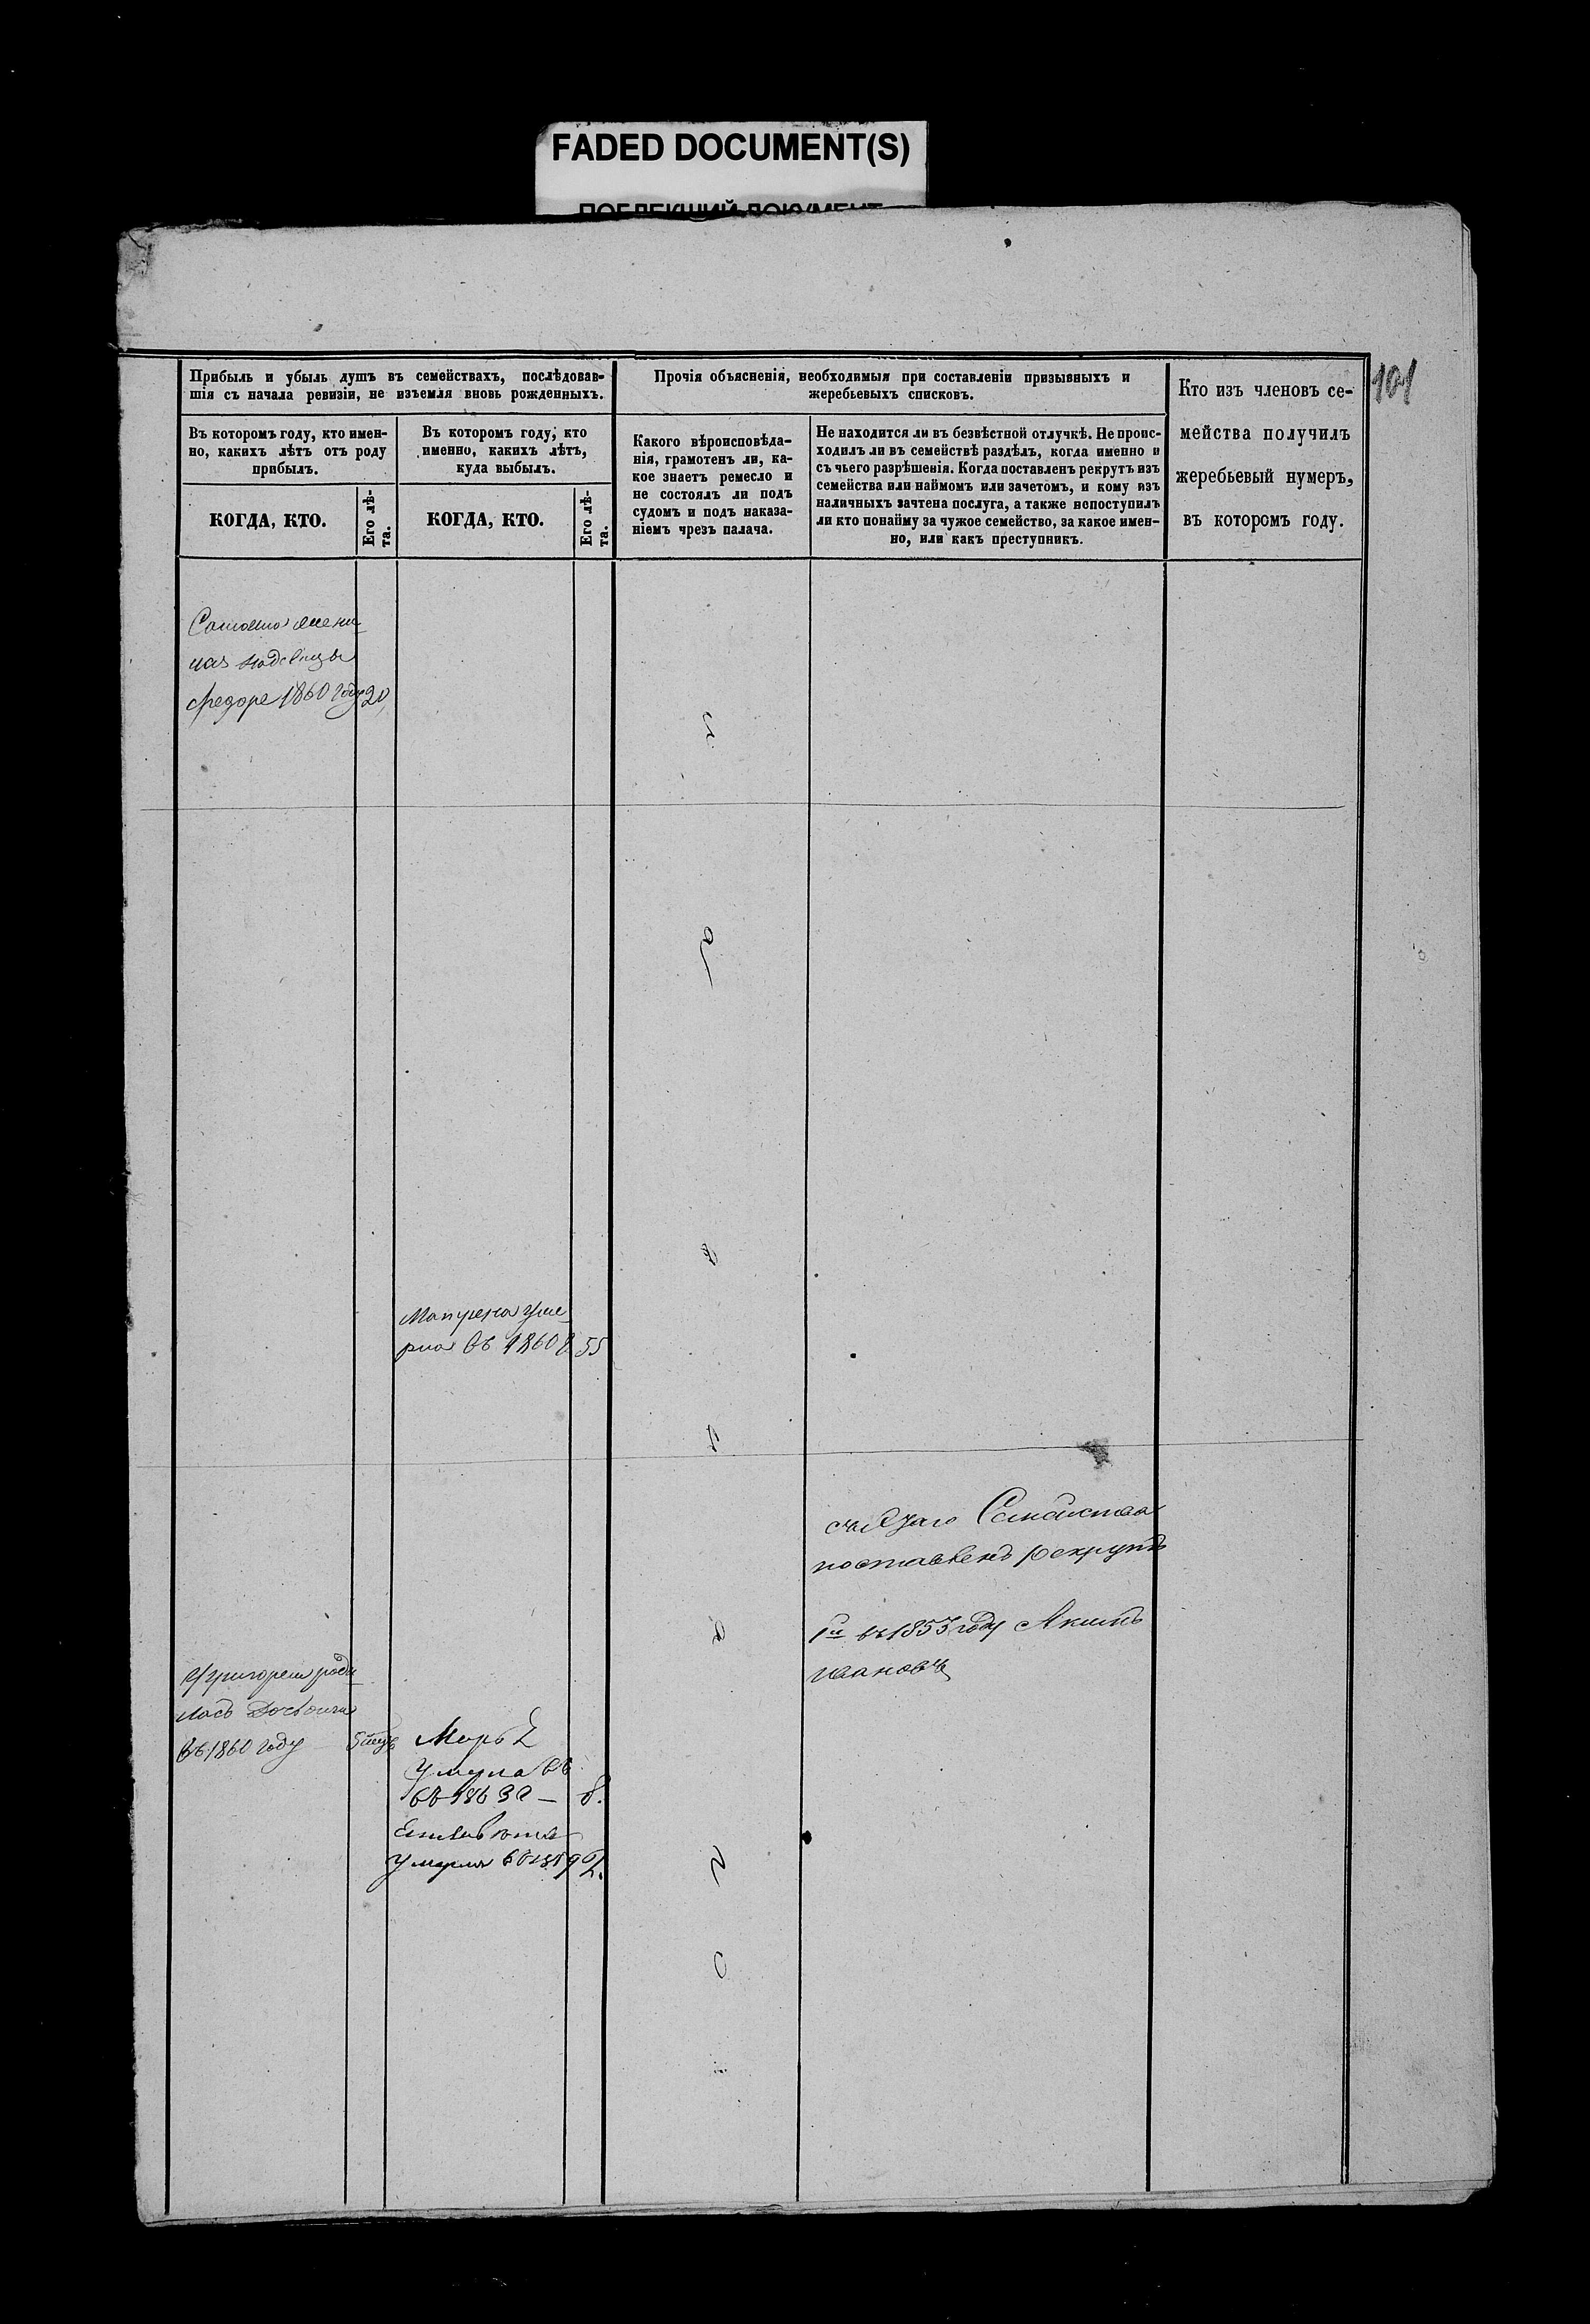 FADED DOCUMENT(S)
ПОБЛЕКШИЙ ДОКУМЕНТ
101
Прибыль и убыль душъ въ семействахъ, послѣдовав-
шія съ начала ревизіи, не изъемля вновь рожденныхъ.
Въ которомъ году, кто имен-
но, какихъ лѣтъ отъ роду
прибылъ.
КОГДА, КТО.
Его лѣ-
та.
Въ которомъ году, кто
именно, какихъ лѣтъ,
куда выбылъ.
КОГДА, КТО.
Его лѣ-
та.
Прочія объясненія, необходимыя при составленіи призывныхъ и
жеребьевыхъ списковъ.
Какого вѣроисповѣда-
нія, грамотенъ ли, ка-
кое знаетъ ремесло и
не состоялъ ли подъ
судомъ и подъ наказа-
ніемъ чрезъ палача.
Не находится ли въ безвѣстной отлучкѣ. Не проис-
ходилъ ли въ семействѣ раздѣлъ, когда именно и
съ чьего разрѣшенія. Когда поставленъ рекрутъ изъ
семейства или наймомъ или зачетомъ, и кому изъ
наличныхъ зачтена послуга, а также непоступилъ
ли кто понайму за чужое семейство, за какое имен-
но, или какъ преступникъ.
Кто изъ членовъ се-
мейства получилъ
жеребьевый нумеръ,
въ которомъ году.
1860 году 20
уме
рла въ 1860 55
Семейства
поставленъ рекрутъ
въ 1853 году Якимъ
Ивановъ
роди
лась
въ 1860 году
Марья
въ 1863 — 8.
умерла